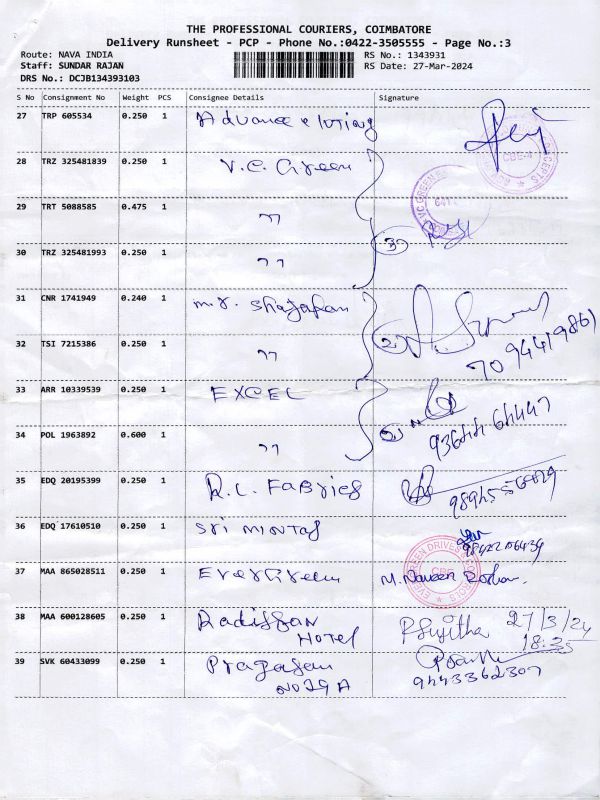 THE PROFESSIONAL COURIERS, COIMBATORE
Delivery Runsheet - PCP - Phone No.:0422-3505555 - Page No.:3
Route: NAVA INDIA RS No.: 1343931
Staff: SUNDAR RAJAN RS Date: 27-Mar-2024
DRS No.: DCJB134393103
S No Consignment No Weight PCS Consignee Details Signature
27 TRP 605534 0.250 1 Advance
28 TRZ 325481839 0.250 1 V.C. Green
29 TRT 5088585 0.475 1 ״
30 TRZ 325481993 0.250 1 ״
3
31 CNR 1741949 0.240 1 m.r. Shajahan
32 TSI 7215386 0.250 1 ״
2
33 ARR 10339539 0.250 1 EXCEL
34 POL 1963892 0.600 1 ״
35 EDQ 20195399 0.250 1 R.C. FABrics
36 EDQ 17610510 0.250 1 Sri
37 MAA 865028511 0.250 1 EverGreen M. Naveen
EVERGREEN DRIVES
CBE
38 MAA 600128605 0.250 1 Radissan Hotel P Sujitha 27/3/24
18:35
39 SVK 60433099 0.250 1 9443362307
NO 29 A